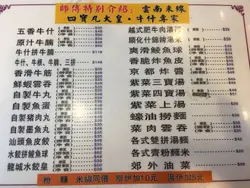 師傅特別介紹：雲南米線
四寶丸大皇・牛什專家
五香牛什
原汁牛腩
牛什拼牛腩
牛什、牛根、牛腩、三拼
香滑牛筋
鮮蝦雲吞
自製魚片
自製魚蛋
自製豬肉丸
自製墨魚丸
汕頭魚皮餃
水餃拼鯪魚球
龍城水餃皇
越式肥牛肉湯河
爽滑鯪魚球
香脆炸魚皮
京都炸醬
紫菜四寶
紫菜三上湯
紫菜上湯
蠔油撈麵
菜肉雲吞
各式雙拼湯麵
各式齋粉麵米
郊外油菜
粉 麵 米線同價 雙拼加10元 加5元